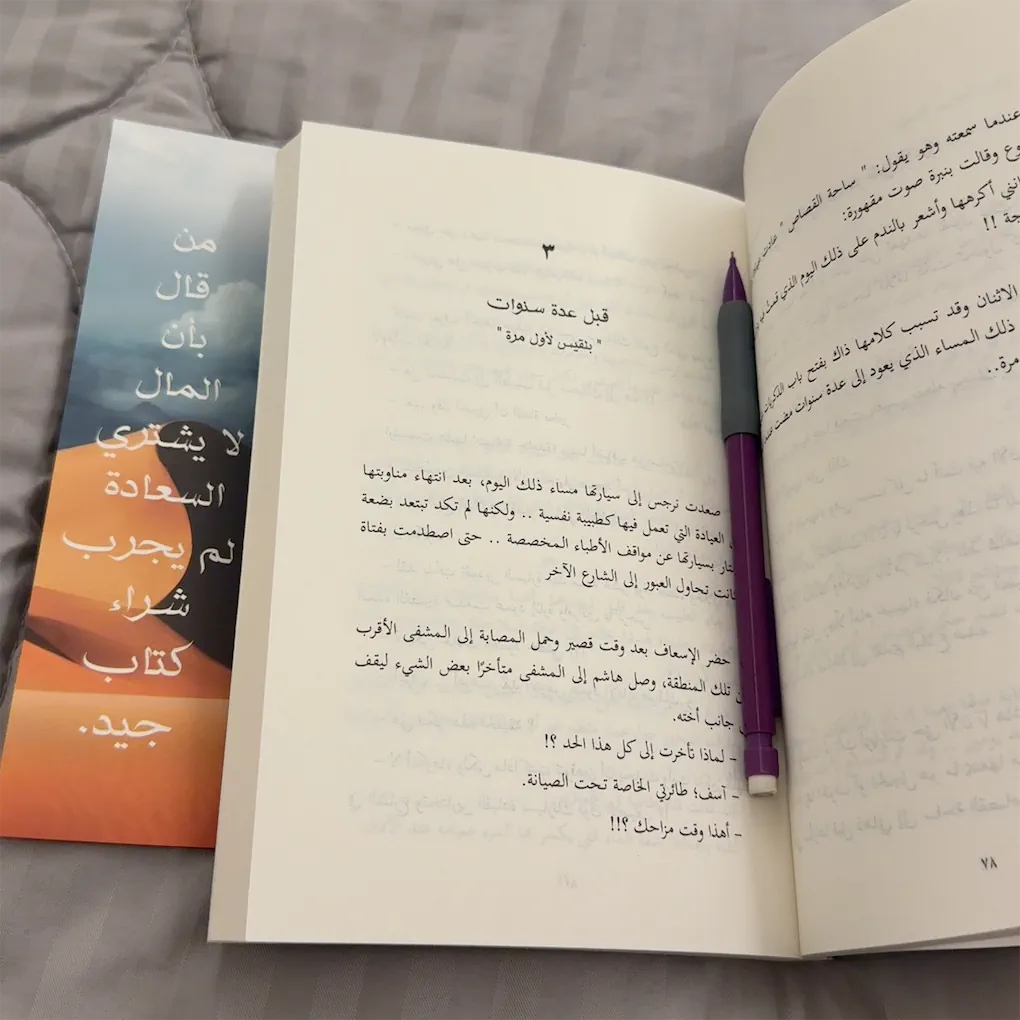 عندما سمعته وهو يقول: " ساحة القصاص " عادت
وقالت بنبرة صوت مقهورة:
أكرهها وأشعر بالندم على ذلك اليوم الذي
!!
الاثنان وقد تسبب كلامها ذاك بفتح باب الذكريات
ذلك المساء الذي يعود إلى عدة سنوات مضت
مرة..
٨٧
٣
قبل عدة سنوات
" بلقيس لأول مرة "
صعدت نرجس إلى سيارتها مساء ذلك اليوم، بعد انتهاء مناوبتها
العيادة التي تعمل فيها كطبيبة نفسية .. ولكنها لم تكد تبتعد بضعة
بسيارتها عن مواقف الأطباء المخصصة .. حتى اصطدمت بفتاة
كانت تحاول العبور إلى الشارع الآخر
حضر الإسعاف بعد وقت قصير وحمل المصابة إلى المشفى الأقرب
تلك المنطقة، وصل هاشم إلى المشفى متأخرًا بعض الشيء ليقف
جانب أخته.
– لماذا تأخرت إلى كل هذا الحد ؟!
– آسف؛ طائرتي الخاصة تحت الصيانة.
– أهذا وقت مزاحك ؟!!
من
قال
بأن
المال
لا يشتري
السعادة
لم يجرب
شراء
كتاب
جيد.